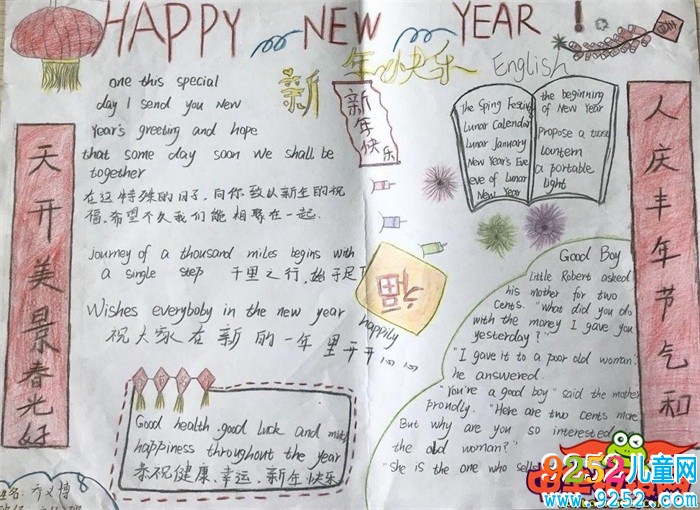 HAPPY NEW YEAR !
新年快乐 English
one this special
day I send you New
Year's greeting and hope
that some day soon we shall be
together
在这特殊的日子,向你致以新年的祝
福,希望不久我们能相聚在一起.
journey of a thousand miles begins with
a single step 千里之行,始于足下
Wishes everybody in the new year happily
祝大家在新的一年里开开心心
Good health, good luck and much
happiness throughout the year
恭祝健康、幸运,新年快乐
天开美景春光好
新年快乐
福
The Sping Festival
Lunar Calendar
Lunar January
New Year's Eve
eve of Lunar
New Year
the beginning
of New Year
Propose a toast
Lountern
a portable
light
人庆丰年节气和
Good Boy
Little Robert asked
his mother for two
cents. "What did you do
with the money I gave you
yesterday?"
"I gave it to a poor old woman."
he answered.
"You're a good boy" said the mother
prondly. "Here are two cents more
But why are you so interested
the old woman?"
"She is the one who sells
姓名:
9252儿童网
www.9252.com